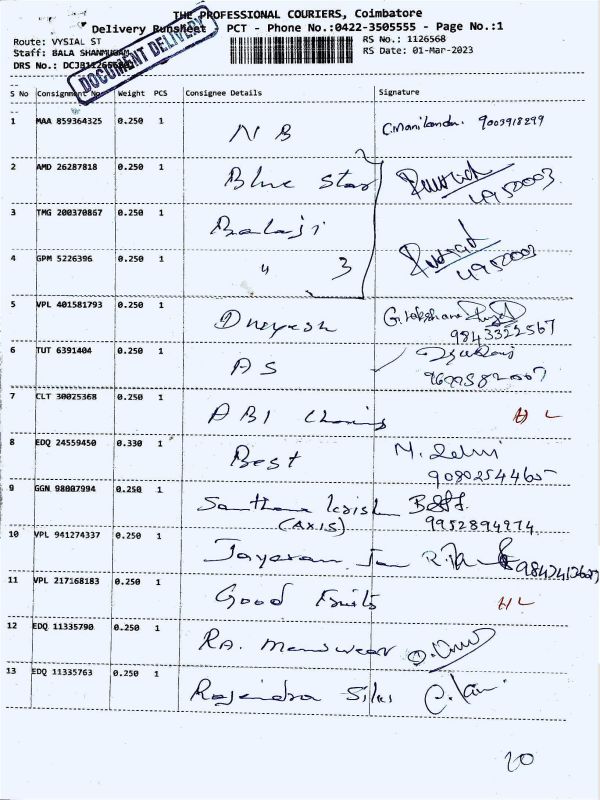 THE PROFESSIONAL COURIERS, Coimbatore
Delivery Runsheet PCT - Phone No.:0422-3505555 - Page No.:1
Route: VYSIAL ST
RS No.: 1126568
Staff: BALA SHANMUGAM
RS Date: 01-Mar-2023
DRS No.:
DOCUMENT DELIVERY
S No Consignment No Weight PCS Consignee Details Signature
1 MAA 859364325 0.250 1 N B 9003918299
2 AMD 26287818 0.250 1 Blue Star 4950003
3 TMG 200370867 0.250 1 Balaji
4 GPM 5226396 0.250 1 " 3 4950003
5 VPL 401581793 0.250 1 9843322567
6 TUT 6391404 0.250 1 A S
7 CLT 30025368 0.250 1 ABI HL
8 EDQ 24559450 0.330 1 Best
9 GGN 98007994 0.250 1 Santhana
(AXIS) 9952894974
10 VPL 941274337 0.250 1 Jayaram
11 VPL 217168183 0.250 1 Good Fruits HL
12 EDQ 11335790 0.250 1 RA. Menswear
13 EDQ 11335763 0.250 1 Rajendra Silks
20